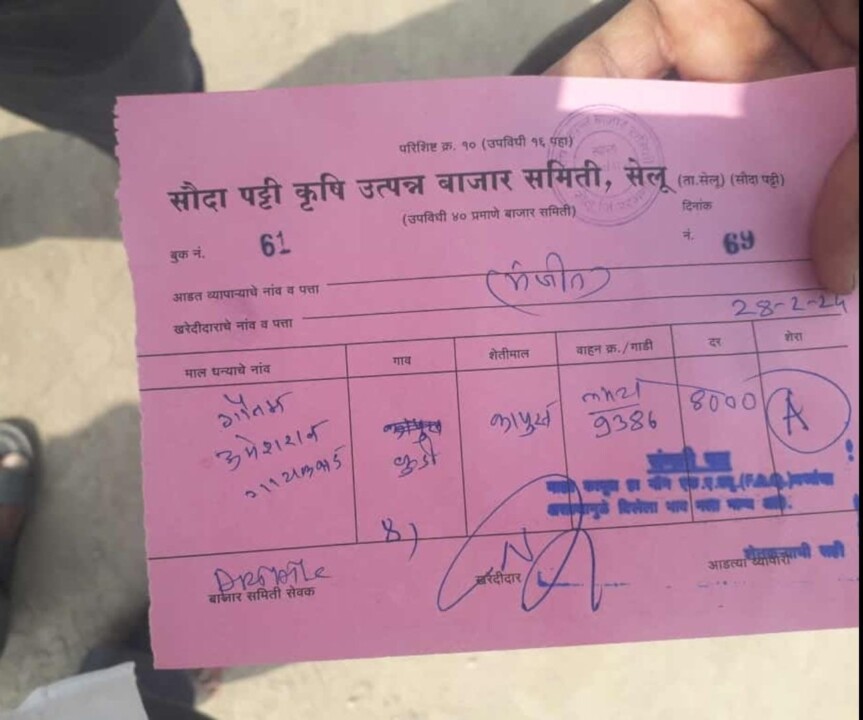 परिशिष्ट क्र. १० (उपविधी १६ पहा)
सौदा पट्टी कृषि उत्पन्न बाजार समिती, सेलू (ता.सेलू) (सौदा पट्टी)
(उपविधी ४० प्रमाणे बाजार समिती) दिनांक
बुक नं. 61 नं. 69
आडत व्यापाऱ्याचे नांव व पत्ता
खरेदीदाराचे नांव व पत्ता 28-2-24
माल धन्याचे नांव गाव शेतीमाल वाहन क्र./गाडी दर शेरा
गौतम कापुस 9386 8000 A
उमेशराव
गायकवाड
बाजार समिती सेवक खरेदीदार आडत्या व्यापारी
शेतकऱ्याची सही